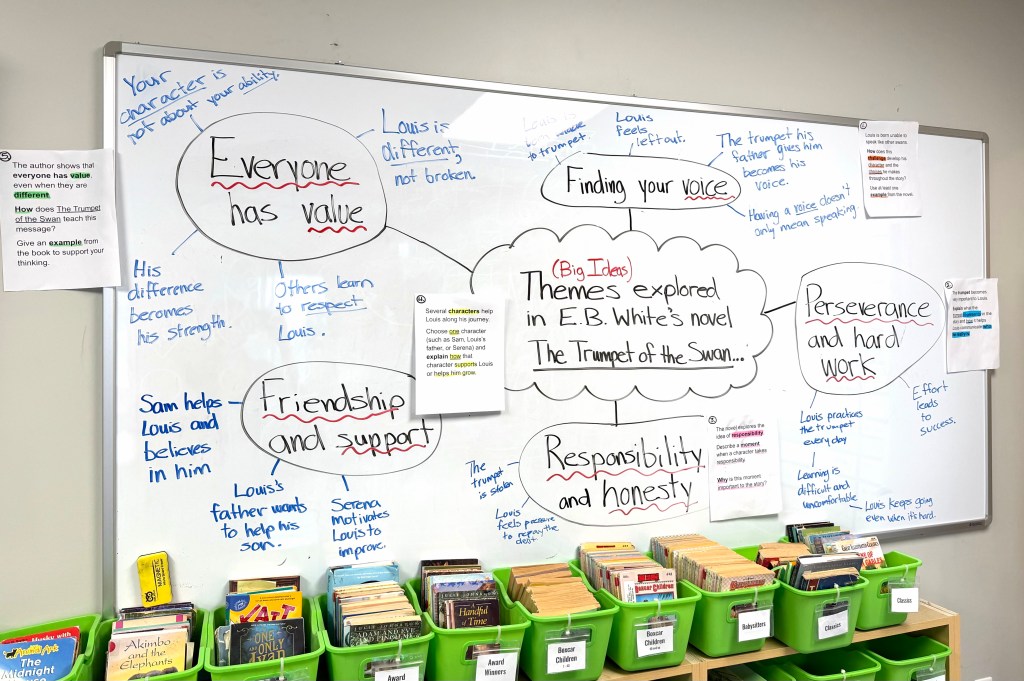 Your
character is
not about your ability.
Everyone
has value
Louis is
different,
not broken.
His
difference
becomes
his strength.
Others learn
to respect
Louis.
Louis is
to trumpet.
Louis
feels
left out.
Finding your voice
The trumpet his
father gives him
becomes his
voice.
Having a voice doesn't
only mean speaking
(Big Ideas)
Themes explored
in E.B. White's novel
The Trumpet of the Swan...
Perseverance
and hard
work
Effort
leads
to
success.
Louis practices
the trumpet
every day
Learning is
difficult and
uncomfortable
Louis keeps going
even when it's hard.
Friendship
and support
Sam helps
Louis and
believes
in him
Louis's
father wants
to help his
son.
Serena
motivates
Louis to
improve.
Responsibility
and honesty
The
trumpet
is stolen
Louis
feels pressure
to repay the
debt
5
The author shows that
everyone has value,
even when they are
different.
How does The Trumpet
of the Swan teach this
message?
Give an example from
the book to support your
thinking.
4
Several characters help
Louis along his journey.
Choose one character
(such as Sam, Louis's
father, or Serena) and
explain how that
character supports Louis
or helps him grow.
3
The novel explores the
idea of responsibility.
Describe a moment
when a character takes
responsibility.
Why is this moment
important to the story?
Louis is born unable to
speak like other swans.
How does this
challenge develop his
character and the
choices he makes
throughout the story?
Use at least one
example from the novel.
2
The trumpet becomes
important to Louis.
MAGNETIC
Husky with
The
Midnight
Akimbo
and the
Elephants
KATT
THE
ONE AND
ONLY
Ivan
ADAM AND EVE
Handful
of Time
Award
Award
Winners
Boxcar
Children
Boxcar Children
Boxcar
Children
Babysitters
Classics
Classics